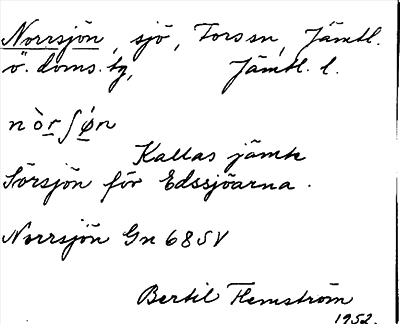 Norrsjön, sjö, Torssn, Jämtl.
ö. doms. tg, Jämtl. l.
nòrʃǿn
Kallas jämte
Sörsjön för Edssjöarna.
Norrsjön Gn 68 SV
Bertil Flemström
1952.